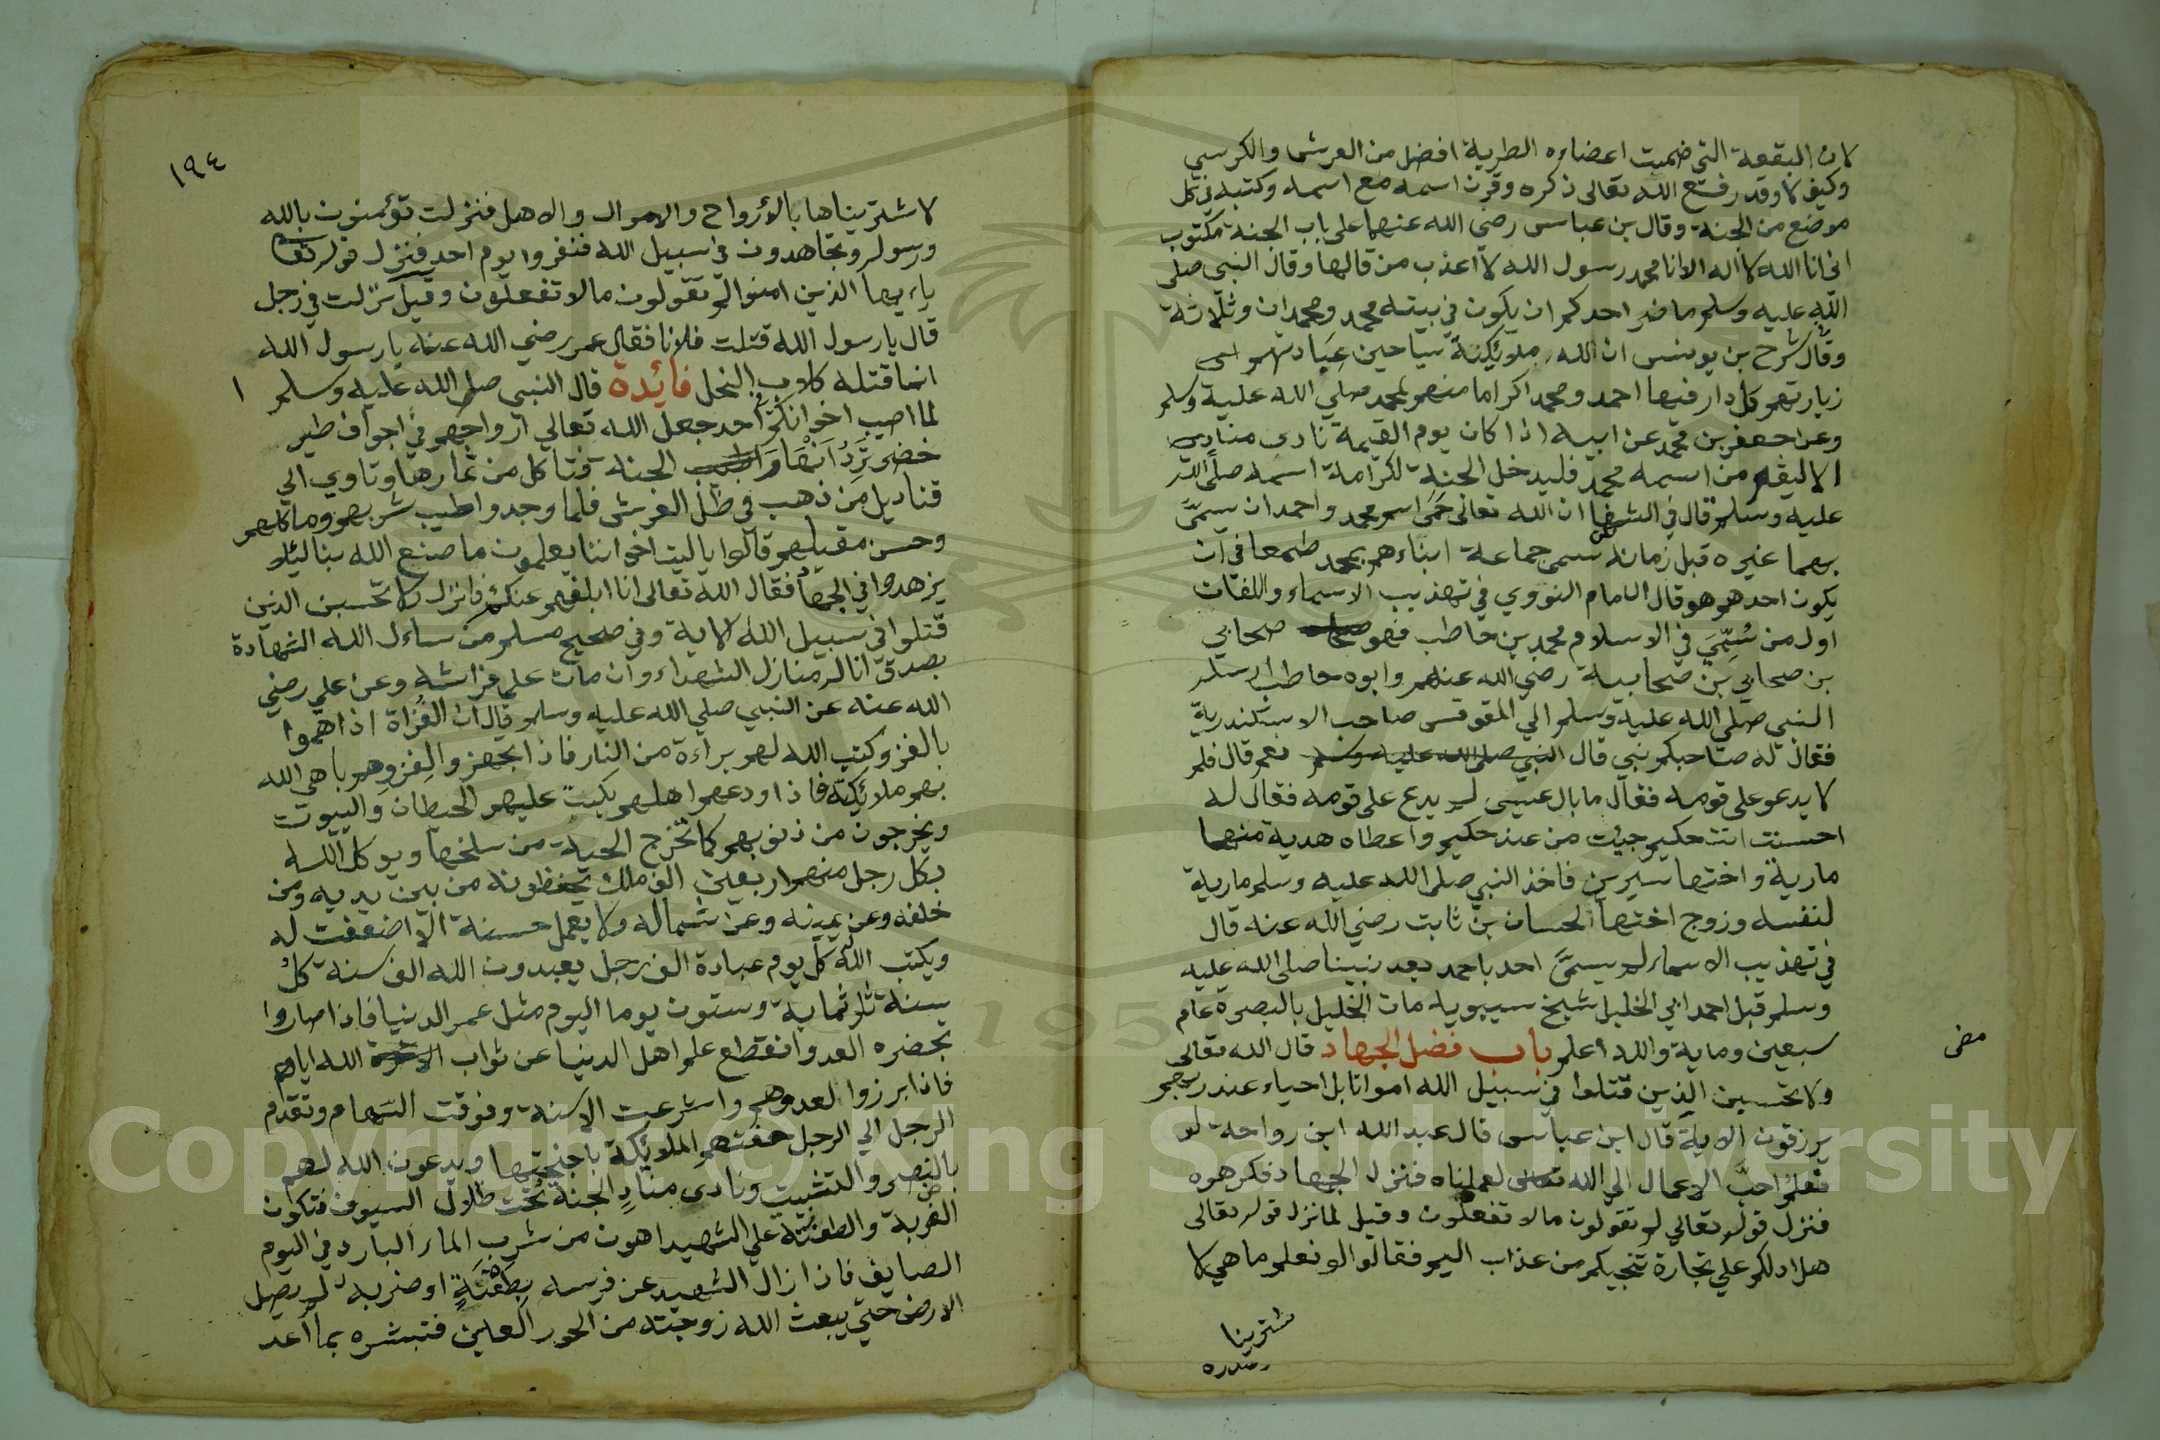 لان البقعة التي ضمت اعضاءه الطرية افضل من العرش والكرسي
وكيف لا وقد رفع الله تعالى ذكره وقرن اسمه مع اسمه وكتبه في كل
موضع من الجنة وقال بن عباس رضي الله عنهما على باب الجنة مكتوب
اني انا الله لا اله الا انا محمد رسول الله لا اعذب من قالها وقال النبي صلى
الله عليه وسلم ما ضر احدكم ان يكون في بيته محمد ومحمدان وثلاثة
وقال شرح بن يونس ان لله ملايكة سياحين عبادتهم
زيارتهم كل دار فيها احمد ومحمد اكراما منهم لمحمد صلي الله علية وسلم
وعن جعفر بن محمد عن ابيه اذا كان يوم القيمة نادى منادي
الا ليقم من اسمه محمد فليدخل الجنة لكرامة اسمه صلى الله
عليه وسلم قال في الشفا ان الله تعالى حمى اسم محمد واحمد ان يسمى
بهما غيره قبل زمانه سمى جماعة ابناءهم بمحمد طمعا في ان
يكون احدهم هو قال الامام النووي في تهذيب الاسماء واللغات
اول من سُمِّيَ في الاسلام محمد بن حاطب فهو صحابي
بن صحابي بن صحابية رضي الله عنهم وابوه حاطب ارسله
النبي صلى الله علية وسلم الي المقوقس صاحب الاسكندرية
فقال له صاحبكم نبي قال النبي صلى الله عليه وسلم نعم قال فلم
لا يدعو على قومه فقال ما بال عيسى لم يدع على قومه فقال له
احسنت انت حكيم جيت من عند حكيم واعطاه هدية منها
مارية واختها سيرين فاخذ النبي صلى الله عليه وسلم مارية
لنفسه وزوج اختها لحسان بن ثابت رضي الله عنه قال
في تهذيب الاسماء لم يسمى احد باحمد بعد نبينا صلى الله عليه
وسلم قبل احمد ابي الخليل شيخ سيبويه مات الخليل بالبصرة عام
سبعين وماية والله اعلم باب فضل الجهاد قال الله تعالى
ولا تحسبن الذين قتلوا في سبيل الله امواتا بل احياء عند ربهم
يرزقون الاية قال ابن عباس قال عبد الله ابن رواحة لو
نعلم احب الاعمال الي الله تعالى لعملناه فنزل الجهاد فكرهوه
فنزل قوله تعالي لم تقولون مالا تفعلون وقيل لما نزل قوله تعالى
هل ادلكم علي تجارة تنجيكم من عذاب اليم فقالوا لو نعلم ما هي لا
شترينا
١٩٤
لاشتريناها بالأرواح والاموال والاهل فنزلت تؤمنون بالله
ورسوله وتجاهدون في سبيل الله فنفروا يوم احد فنزل قوله تعا
يا ءيها الذين امنوا لم تقولون مالا تفعلون وقيل نزلت في رجل
قال يا رسول الله قتلت فلانا فقال عمر رضي الله عنه يا رسول الله
انما قتله كلاب النحل فائدة قال النبي صلى الله عليه وسلم
لما اصيب اخوانكم أحد جعل الله تعالي ارواحهم في اجواف طير
خضر تَرِدُ انهار الجنة فتاكل من ثمارها وتاوي الي
قناديل من ذهب في ظل العرش فلما وجدوا طيب شربهم وماكلهم
وحسن مقيلهم قالوا ياليت اخواننا يعلمون ما صنع الله بنا ليلا
يزهدوا في الجهاد فقال الله تعالى انا ابلغهم عنكم فانزل ولا تحسبن الذين
قتلوا في سبيل الله الاية وفي صحيح مسلم من ساءل الله الشهادة
بصدق اناله منازل الشهداء وان مات على فراشه وعن علي رضي
الله عنه عن النبي صلي الله عليه وسلم قال ان الغُزاة اذا هموا
بالغزو كتب الله لهم براءة من النار فاذا تجهز والغزوهم باهى الله
بهم ملائيكته فاذا ودعهم اهلهم بكيت عليهم الحيطان والبيوت
ويخرجون من ذنوبهم كما تخرج الحية من سلخها ويوكل الله
بكل رجل منهم اربعين الف ملك يحفظونه من بين يديه ومن
خلفه وعن يمينه وعن شماله ولا يعمل حسنة الا اضعفت له
ويكتب الله كل يوم عبادة الف رجل يعبدون الله الف سنة كل
سنة ثلاثماية وستون يوما اليوم مثل عمر الدنيا فاذا صاروا
بحضره العدو انقطع علم اهل الدنيا عن ثواب الله اياهم
فاذا برزوا لعدوهم واشرعت الاسنة وفوقت السهام وتقدم
الرجل الي الرجل حفتهم الملايكة باجنحتها ويدعون الله لهم
بالنصر والتثبيت ونادى منادٍ الجنة تحت ظلال السيوف فتكون
الضربة والطعنة علي الشهيد اهون من شرب الماء البارد في اليوم
الصايف فاذا زال الشهيد عن فرسه بِطَعْنَةٍ او ضربة لم يصل
الارض حتي يبعث الله زوجته من الحور العين فتبشره بما اعد
Copyright © King Saud University